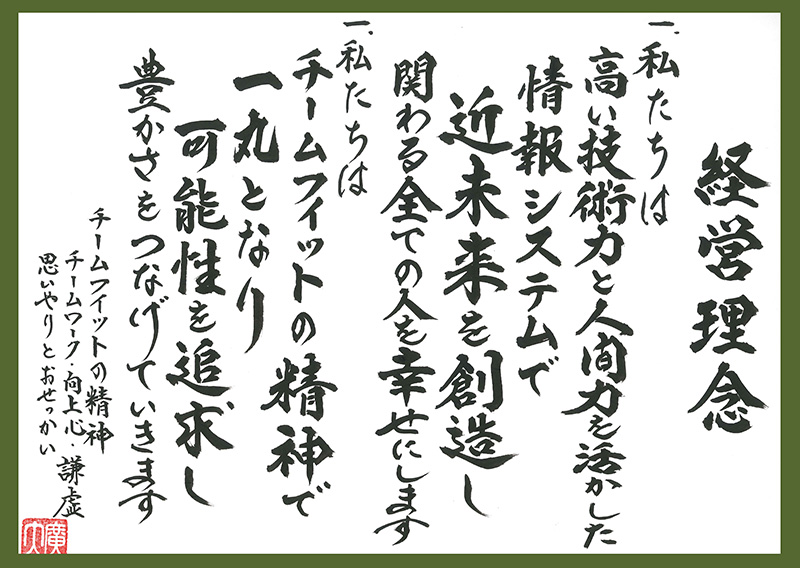 経営理念
一.私たちは
高い技術力と人間力を活かした
情報システムで
近未来を創造し
関わる全ての人を幸せにします
一.私たちは
チームフィットの精神で
一丸となり
可能性を追求し
豊かさをつなげていきます
チームフィットの精神
チームワーク・向上心・謙虚
思いやりとおせっかい